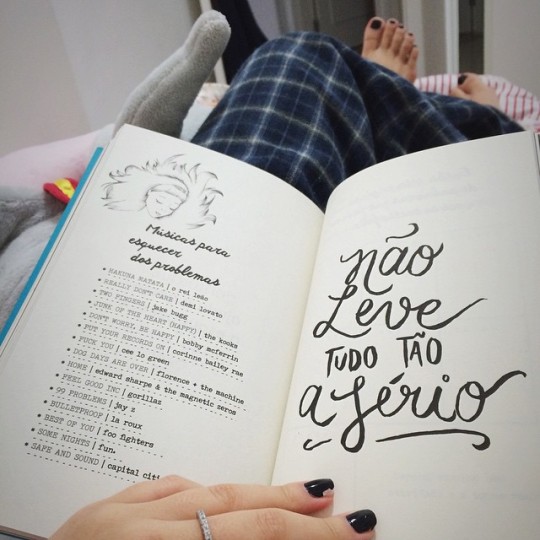 Músicas para
esquecer
dos problemas
• HAKUNA MATATA | o rei leão
• REALLY DON'T CARE | demi lovato
• TWO FINGERS | jake bugg
• JUNK OF THE HEART (HAPPY) | the kooks
• DON'T WORRY, BE HAPPY | bobby mcferrin
• PUT YOUR RECORDS ON | corinne bailey rae
• FUCK YOU | cee lo green
• DOG DAYS ARE OVER | florence + the machine
• HOME | edward sharpe & the magnetic zeros
• FEEL GOOD INC | gorillaz
• 99 PROBLEMS | jay z
• BULLETPROOF | la roux
• BEST OF YOU | foo fighters
• SOME NIGHTS | fun.
• SAFE AND SOUND | capital citi
não
Leve
TUDO TÃO
a sério